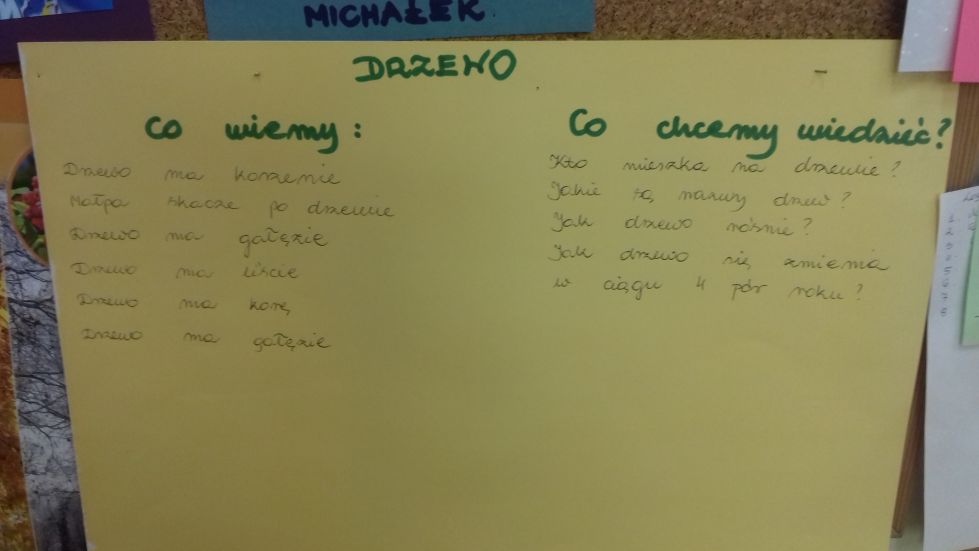 MICHAŁEK
DRZEWO
Co wiemy:
Drzewo ma korzenie
Małpa skacze po drzewie
Drzewo ma gałęzie
Drzewo ma liście
Drzewo ma korę
Drzewo ma gałęzie
Co chcemy wiedzieć?
Kto mieszka na drzewie?
Jakie są nazwy drzew?
Jak drzewo rośnie?
Jak drzewo się zmienia
w ciągu 4 pór roku?